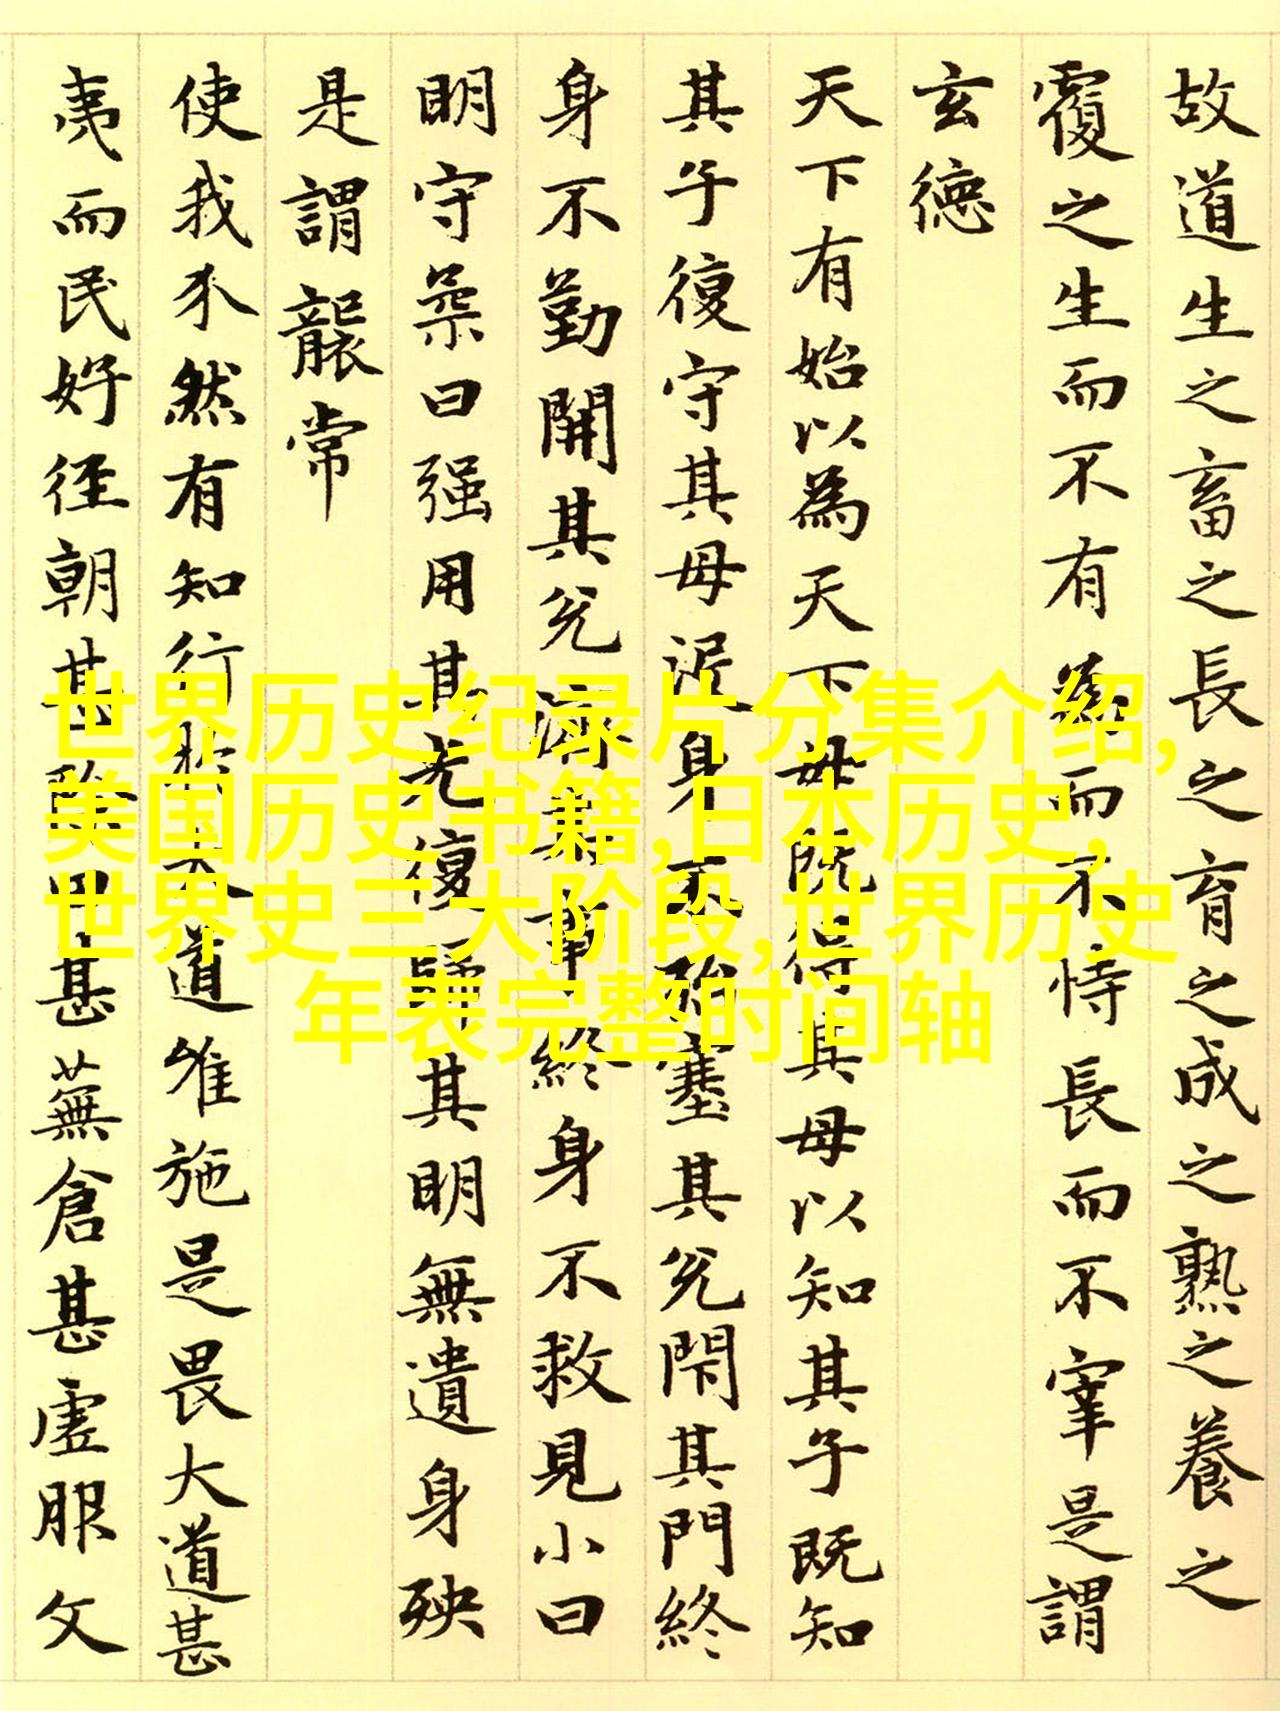 故道生之畜之長之育之成之熟之養之
覆之生而不有為而不恃長而不宰是謂
玄德
天下有始以為天下母既得其母以知其子既知
其子復守其母沒身不殆塞其兌閇其門終
身不勤開其兌濟其事終身不救見小曰
明守柔曰强用其光復歸其明無遺身殃
是謂襲常
使我介然有知行於大道唯施是畏大道甚
夷而民好径朝甚除田甚蕪倉甚虛服文
世界历史纪录片分集介绍,
美国历史书籍,日本历史,
世界史三大阶段,世界历史
年表完整时间轴